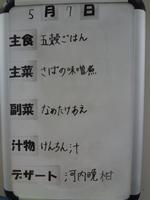 5月7日
主食 五穀ごはん
主菜 さばの味噌煮
副菜 なめたけあえ
汁物 けんちん汁
デザート 河内晩柑